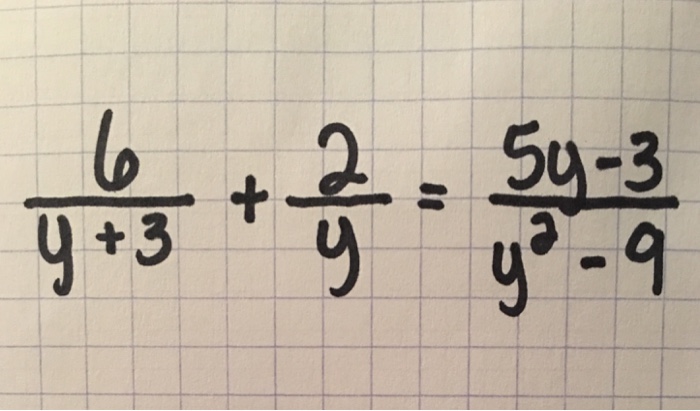 6/(y+3) + 2/y = (5y-3)/(y²-9)